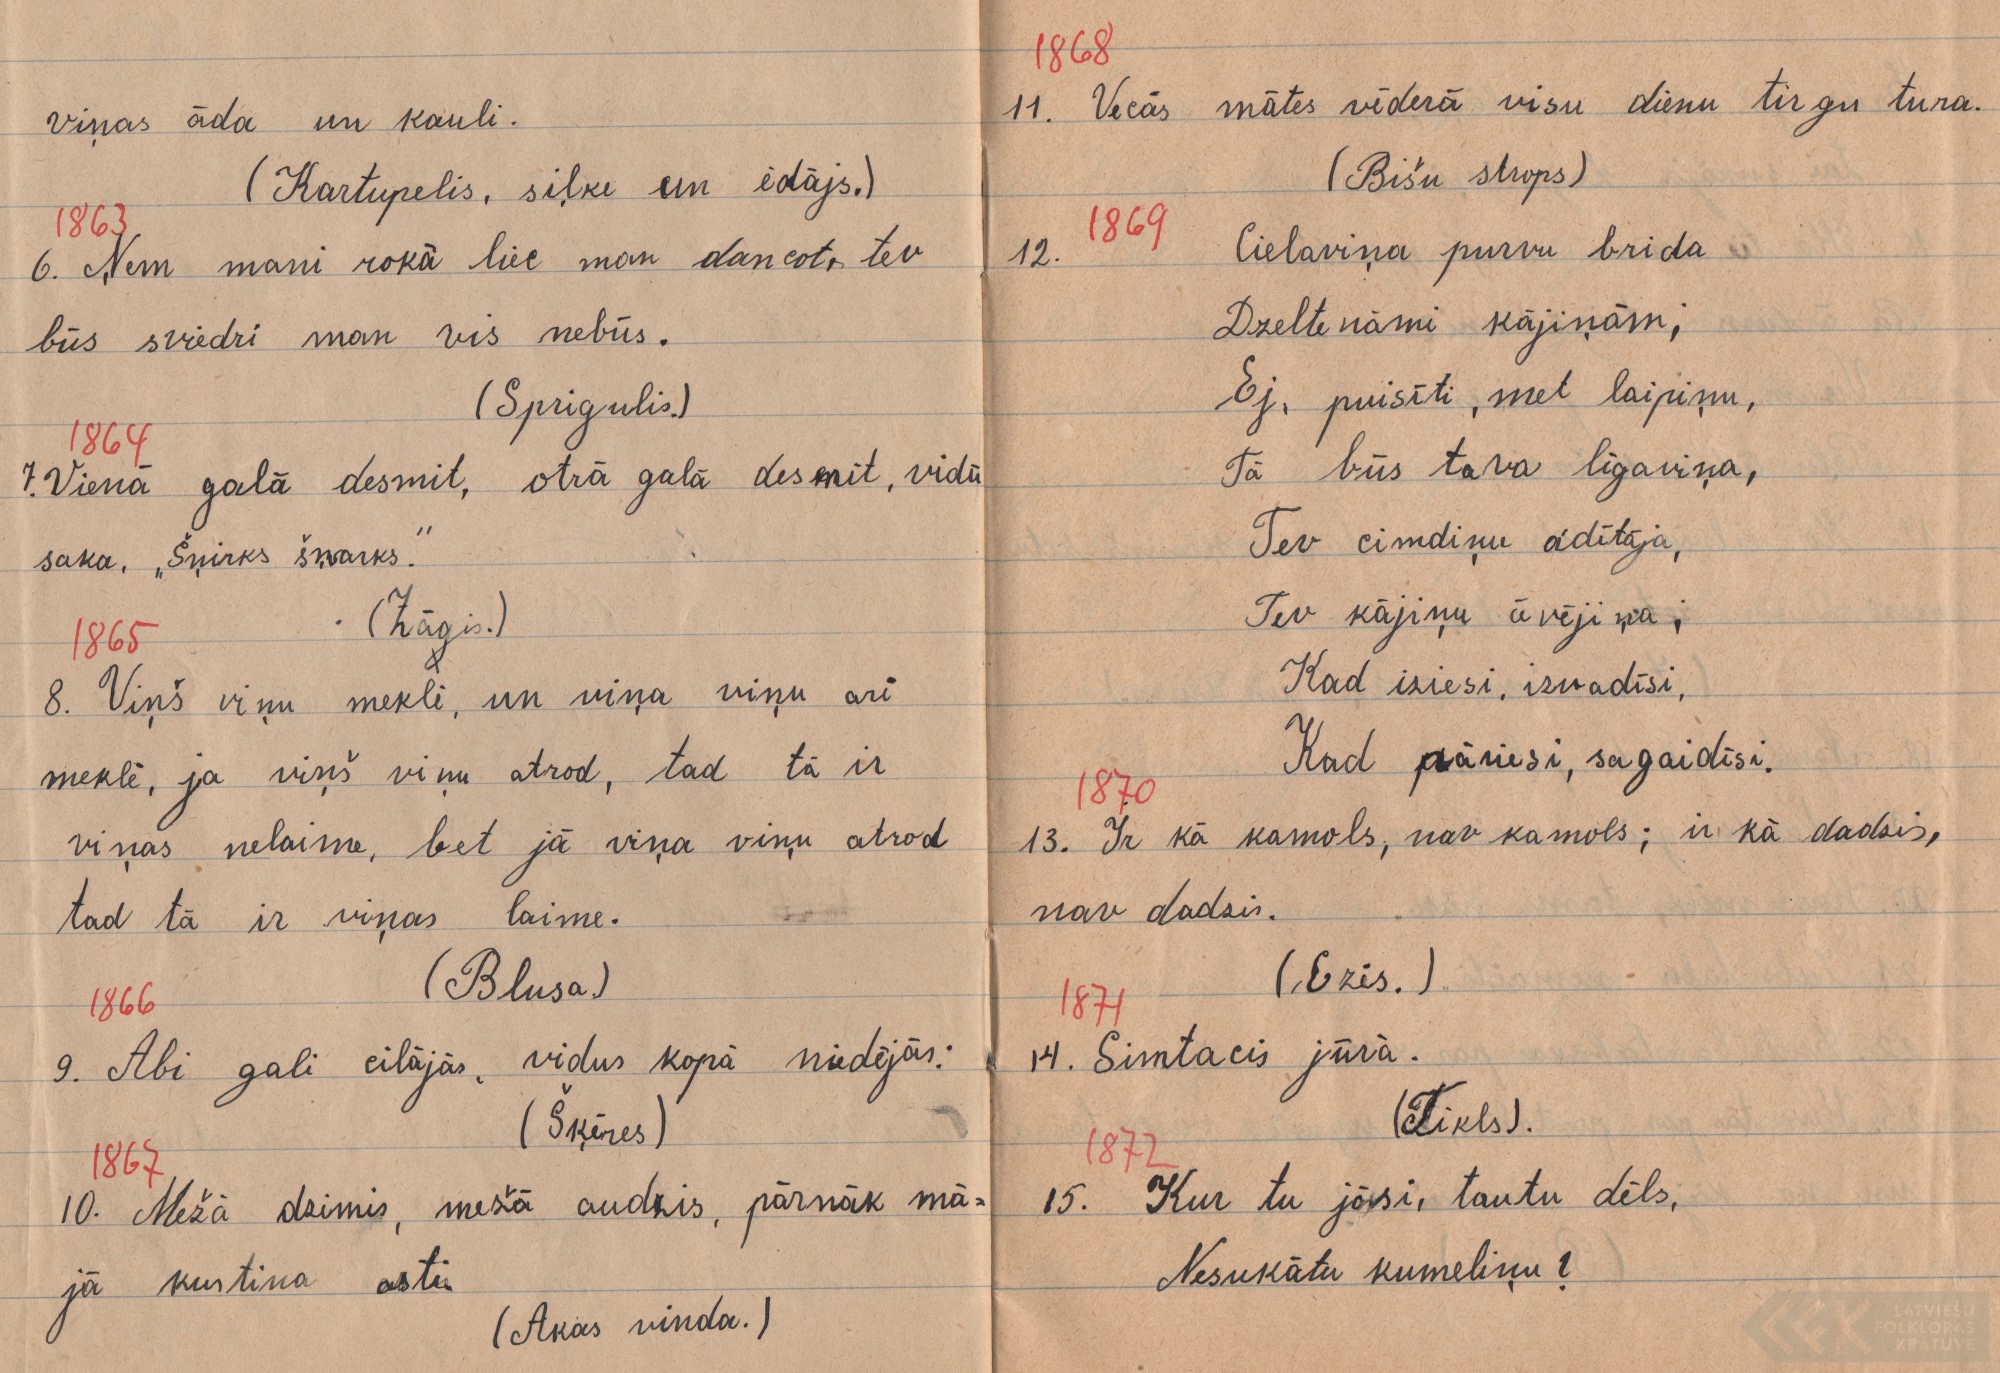 viņas āda un kauli.
(Kartupelis, siļķe un ēdājs.)
1863
6. Ņem mani rokā liec man dancot, tev
būs sviedri man vis nebūs.
(Sprigulis.)
1864
7. Vienā galā desmit, otrā galā desmit, vidū
saka, „Šņirks šņarks."
(Zāģis.)
1865
8. Viņš viņu meklē, un viņa viņu arī
meklē, ja viņš viņu atrod, tad tā ir
viņas nelaime, bet jā viņa viņu atrod
tad tā ir viņas laime.
(Blusa.)
1866
9. Abi gali cilājās, vidus kopā niedējās:
(Šķēres)
1867
10. Mežā dzimis, mežā audzis, pārnāk mā=
jā kustina asti.
(Akas vinda.)
1868
11. Vecās mātes vēderā visu dienu tirgu tura.
(Bišu strops)
1869
12. Cielaviņa purvu brida
Dzeltenāmi kājiņām;
Ej, puisīti, met laipiņu,
Tā būs tava līgaviņa,
Tev cimdiņu adītāja,
Tev kājiņu āvējiņa;
Kad iziesi, izvadīsi,
Kad pāriesi, sagaidīsi.
1870
13. Ir kā kamols, nav kamols; ir kā dadzis,
nav dadzis.
(Ezis.)
1871
14. Simtacis jūrā.
(Tikls).
1872
15. Kur tu jāsi, tautu dēls,
Nesukātu kumeliņu?
LATVIEŠU
FOLKLORAS
KRĀTUVE